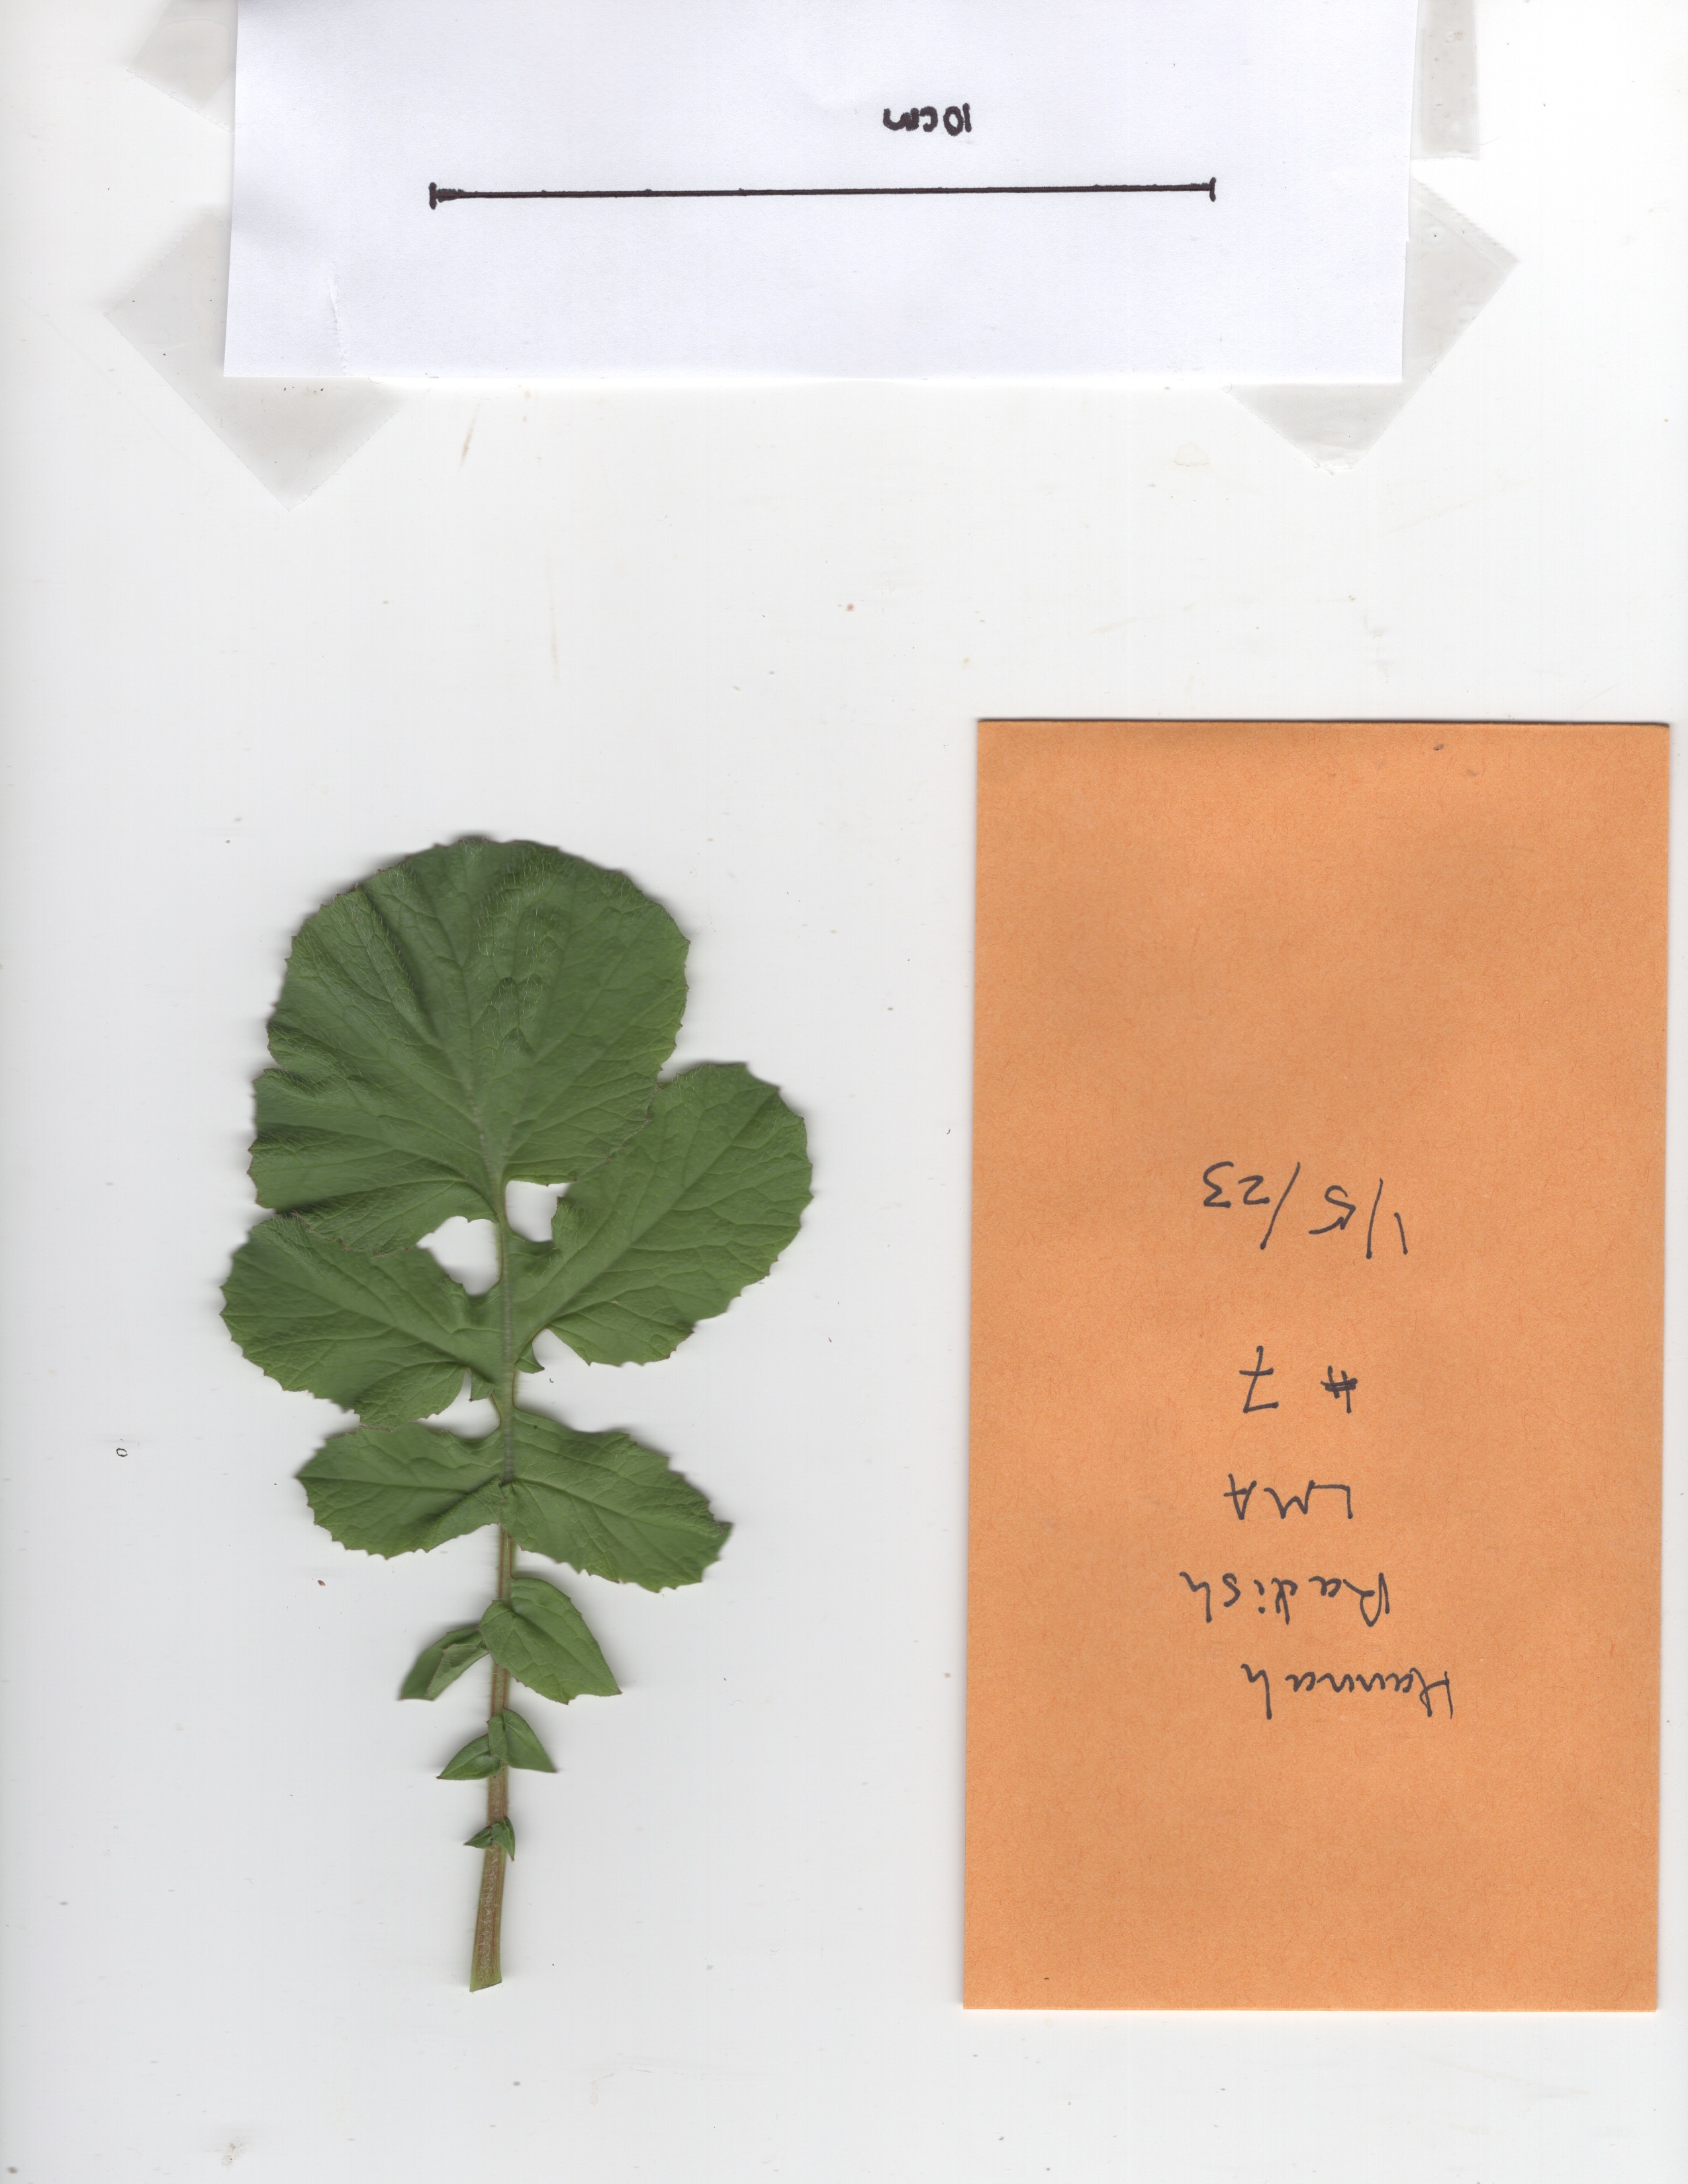 10cm
Hannah
Radish
LMA
# 7
1/5/23